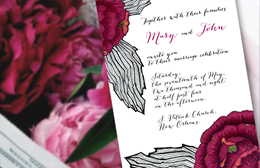 Together with their families
Mary and John
invite you
to their marriage celebration
Saturday,
the seventeenth of May
two thousand and eight
at half past four
in the afternoon.
S. Patrick Church
New Orleans